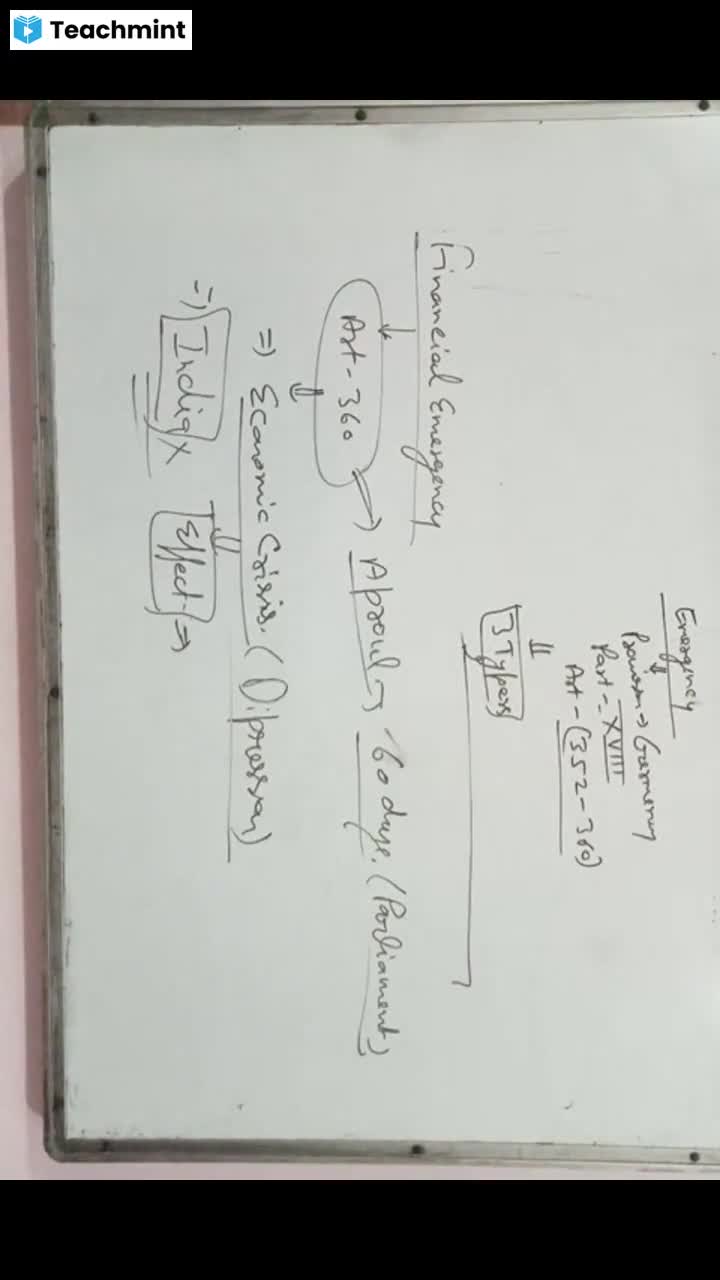 Teachmint
Emergency
Provision → Germany
Part - XVIII
Art - (352 - 360)
3 Types
Financial Emergency
Art - 360 → Aproul → 60 days. (Parliament)
⇒ Economic Crisis. (Dipression)
⇒ India X Effect ⇒